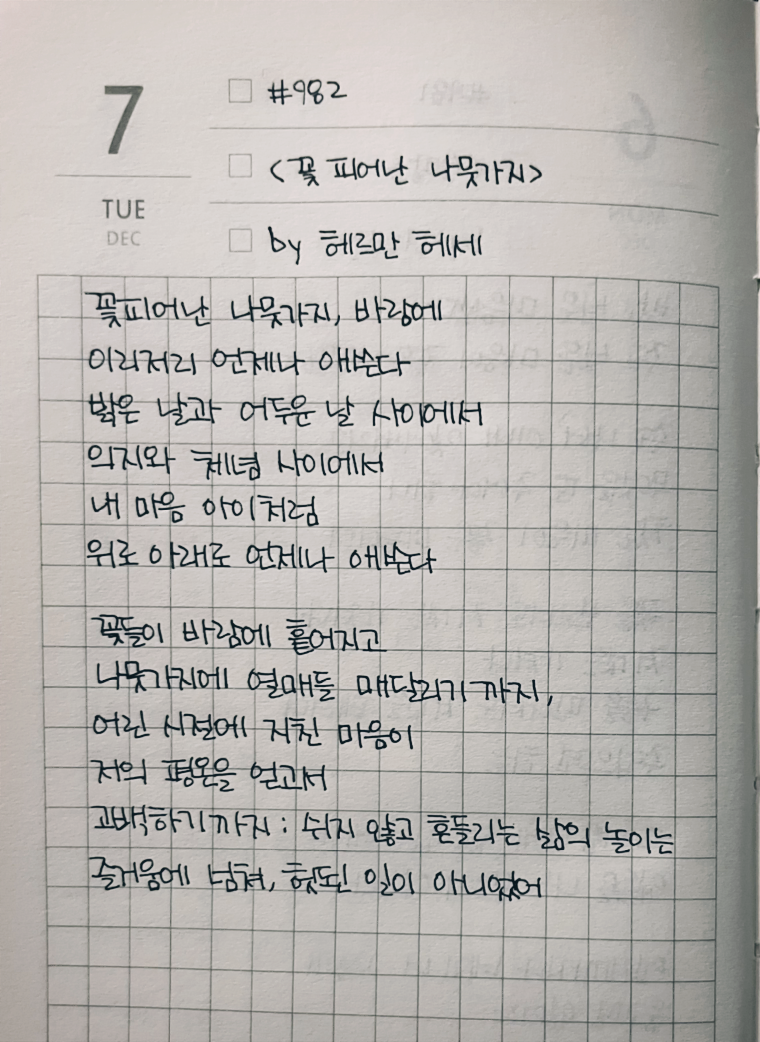 7
TUE
DEC
#982
<꽃 피어난 나뭇가지>
by 헤르만 헤세
꽃피어난 나뭇가지, 바람에
이리저리 언제나 애쓴다
밝은 날과 어두운 날 사이에서
의지와 체념 사이에서
내 마음 아이처럼
위로 아래로 언제나 애쓴다
꽃들이 바람에 흩어지고
나뭇가지에 열매들 매달리기까지,
어린 시절에 지친 마음이
저의 평온을 얻고서
고백하기까지: 쉬지 않고 흔들리는 삶의 놀이는
즐거움에 넘쳐, 헛된 일이 아니었어